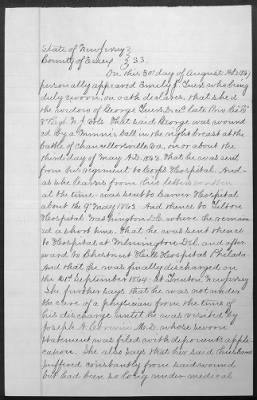 State of New Jersey }
County of Essex } SS.
On this 30th day of August A.D. 1887
personally appeared Emily J. Tuers who being
duly sworn, on oath declares, that she is
the widow of George Tuers Dec'd late Priv. Co.
8th Regt N.J. Vols. That said George was wound-
ed by a Minnie ball in the right breast at the
battle of Chancellorsville Va., on or about the
third day of May A.D. 1863. That he was sent
from his regiment to Corps Hospital. And
as she learns from his letters
at the time was sent to Carver Hospital
about the 9th May 1863. And thence to Tilton
Hospital where he remain-
ed a short time. That he was sent thence
to Hospital at Wilmington Del. and after-
ward to Chestnut Hill Hospital Philada
And that he was finally discharged on
the 21st September 1864 at Trenton New Jersey
She further says that he was not under
the care of a physician from the time of
his discharge until he was visited by
Joseph A. M.D. whose sworn
statement was filed with deponents appli-
cation. She also says that her said husband
suffered constantly from said wound
but had been so long under medical